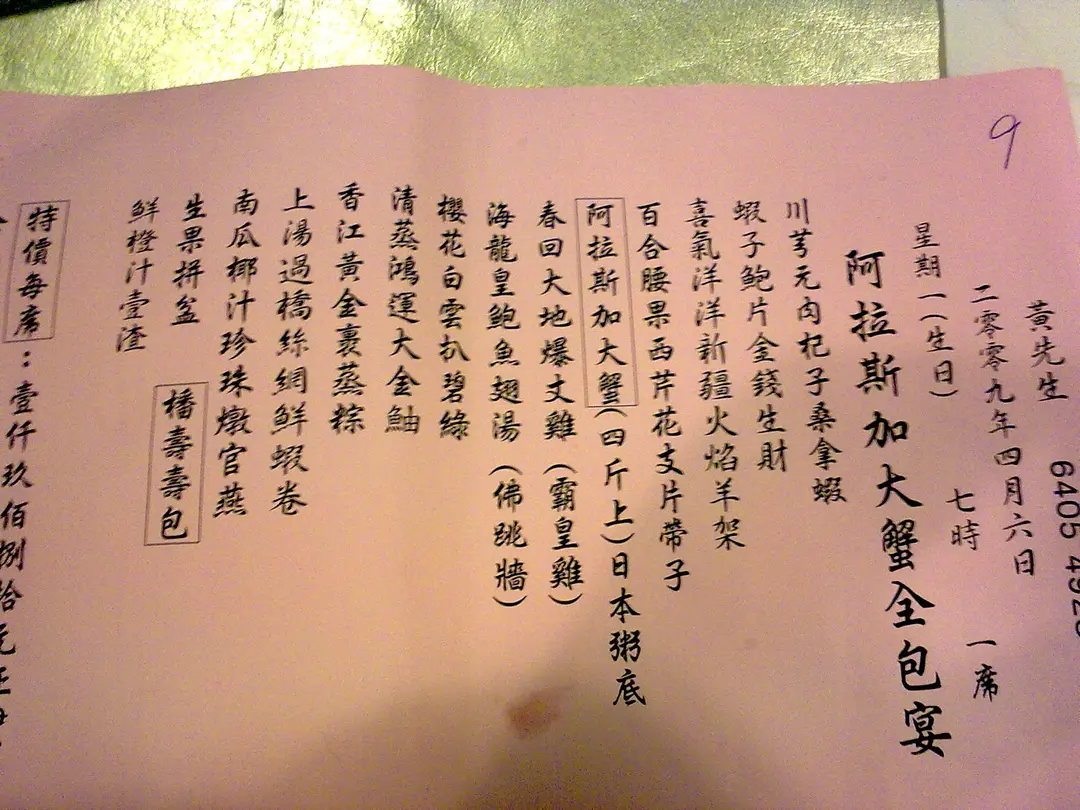 9
黃先生 6405 4928
二零零九年四月六日
星期一(生日) 七時 一席
阿拉斯加大蟹全包宴
川芎元肉杞子桑拿蝦
蝦子鮑片金錢生財
喜氣洋洋新疆火焰羊架
百合腰果西芹花支片帶子
阿拉斯加大蟹(四斤上)日本粥底
春回大地爆丈雞(霸皇雞)
海龍皇鮑魚翅湯(佛跳牆)
櫻花白雲扒碧綠
清蒸鴻運大金鮋
香江黃金裹蒸粽
上湯過橋絲網鮮蝦卷
南瓜椰汁珍珠燉官燕
生果拼盆 橎壽壽包
鮮橙汁壹渣
特價每席：壹仟玖佰捌拾元正